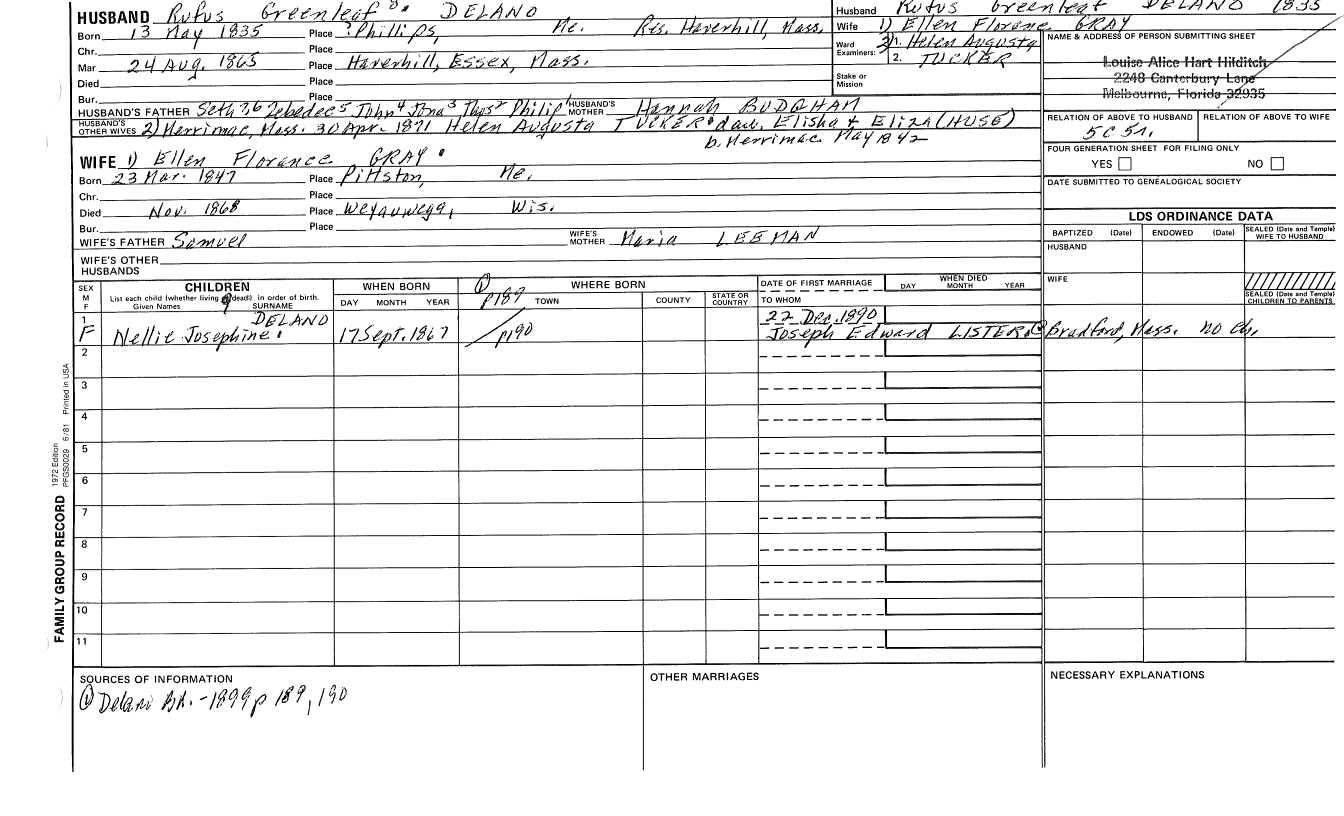 HUSBAND Rufus Greenleaf 8. DELANO
Husband Rufus Greenleaf DELANO 1835
Born 13 May 1835 Place Phillips, Me. Res. Haverhill, Mass.
Wife 1) Ellen Florance GRAY
Chr. Place
Ward Examiners: 1. Helen Augusta
2. TUCKER
Mar 24 Aug. 1865 Place Haverhill, Essex, Mass.
Died Place
Stake or Mission
Bur. Place
NAME & ADDRESS OF PERSON SUBMITTING SHEET
Louise Alice Hart Hilditch
2248 Canterbury Lane
Melbourne, Florida 32935
HUSBAND'S FATHER Seth 7,6 Zebadee 5 John 4 Jona 3 Thos 2 Philip 1 HUSBAND'S MOTHER Hannah
HUSBAND'S OTHER WIVES 2) Merrimac, Mass. 30 Apr. 1871 Helen Augusta TUCKER dau. Elisha & Eliza (HUSE)
b. Merrimac May 1842
RELATION OF ABOVE TO HUSBAND RELATION OF ABOVE TO WIFE
WIFE 1) Ellen Florance GRAY
Born 23 Mar. 1847 Place Pittston, Me.
Chr. Place
Died Nov. 1868 Place Weyauwega, Wis.
Bur. Place
WIFE'S FATHER Samuel WIFE'S MOTHER Maria LEEMAN
WIFE'S OTHER HUSBANDS
FOUR GENERATION SHEET FOR FILING ONLY
YES NO
DATE SUBMITTED TO GENEALOGICAL SOCIETY
LDS ORDINANCE DATA
BAPTIZED (Date) ENDOWED (Date) SEALED (Date and Temple) WIFE TO HUSBAND
HUSBAND
WIFE
SEALED (Date and Temple) CHILDREN TO PARENTS
SEX M F
CHILDREN
List each child (whether living or dead) in order of birth.
Given Names SURNAME
WHEN BORN
DAY MONTH YEAR
WHERE BORN
① p189 TOWN COUNTY STATE OR COUNTRY
DATE OF FIRST MARRIAGE
TO WHOM
WHEN DIED
DAY MONTH YEAR
1 DELANO 22 Dec. 1890
F Nellie Josephine 17 Sept. 1867 p190 Joseph Edward LISTER Bradford, Mass. no ch.
2
3
4
5
6
7
8
9
10
11
FAMILY GROUP RECORD 1972 Edition PFGS0029 6/81 Printed in USA
SOURCES OF INFORMATION
① Delano Bk. - 1899 p 189, 190
OTHER MARRIAGES
NECESSARY EXPLANATIONS